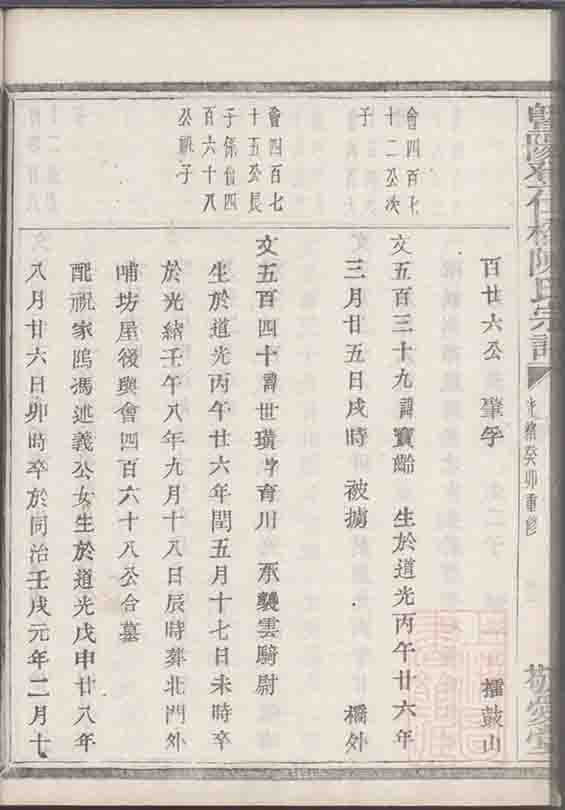 暨陽孝仁橋陳氏宗譜
光緒癸卯重修
敬愛堂
百廿六公 肇孚 擂鼓山
會四百七
十二公次
子
文五百三十九諱寶齡 生於道光丙午廿六年
三月廿五日戌時 被擄 橋外
會四百七
十五公長
子係會四
百六十八
公祧子
文五百四十諱世璜字育川 承襲雲騎尉
生於道光丙午廿六年閏五月十七日未時卒
於光緒壬午八年九月十八日辰時葬北門外
哺坊屋後與會四百六十八公合墓
配祝家隖馮述義公女生於道光戊申廿八年
八月廿六日卯時卒於同治壬戌元年二月十